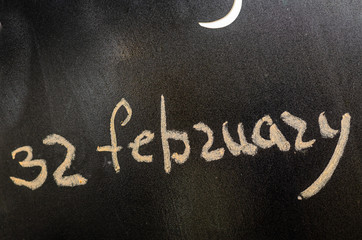 32 february